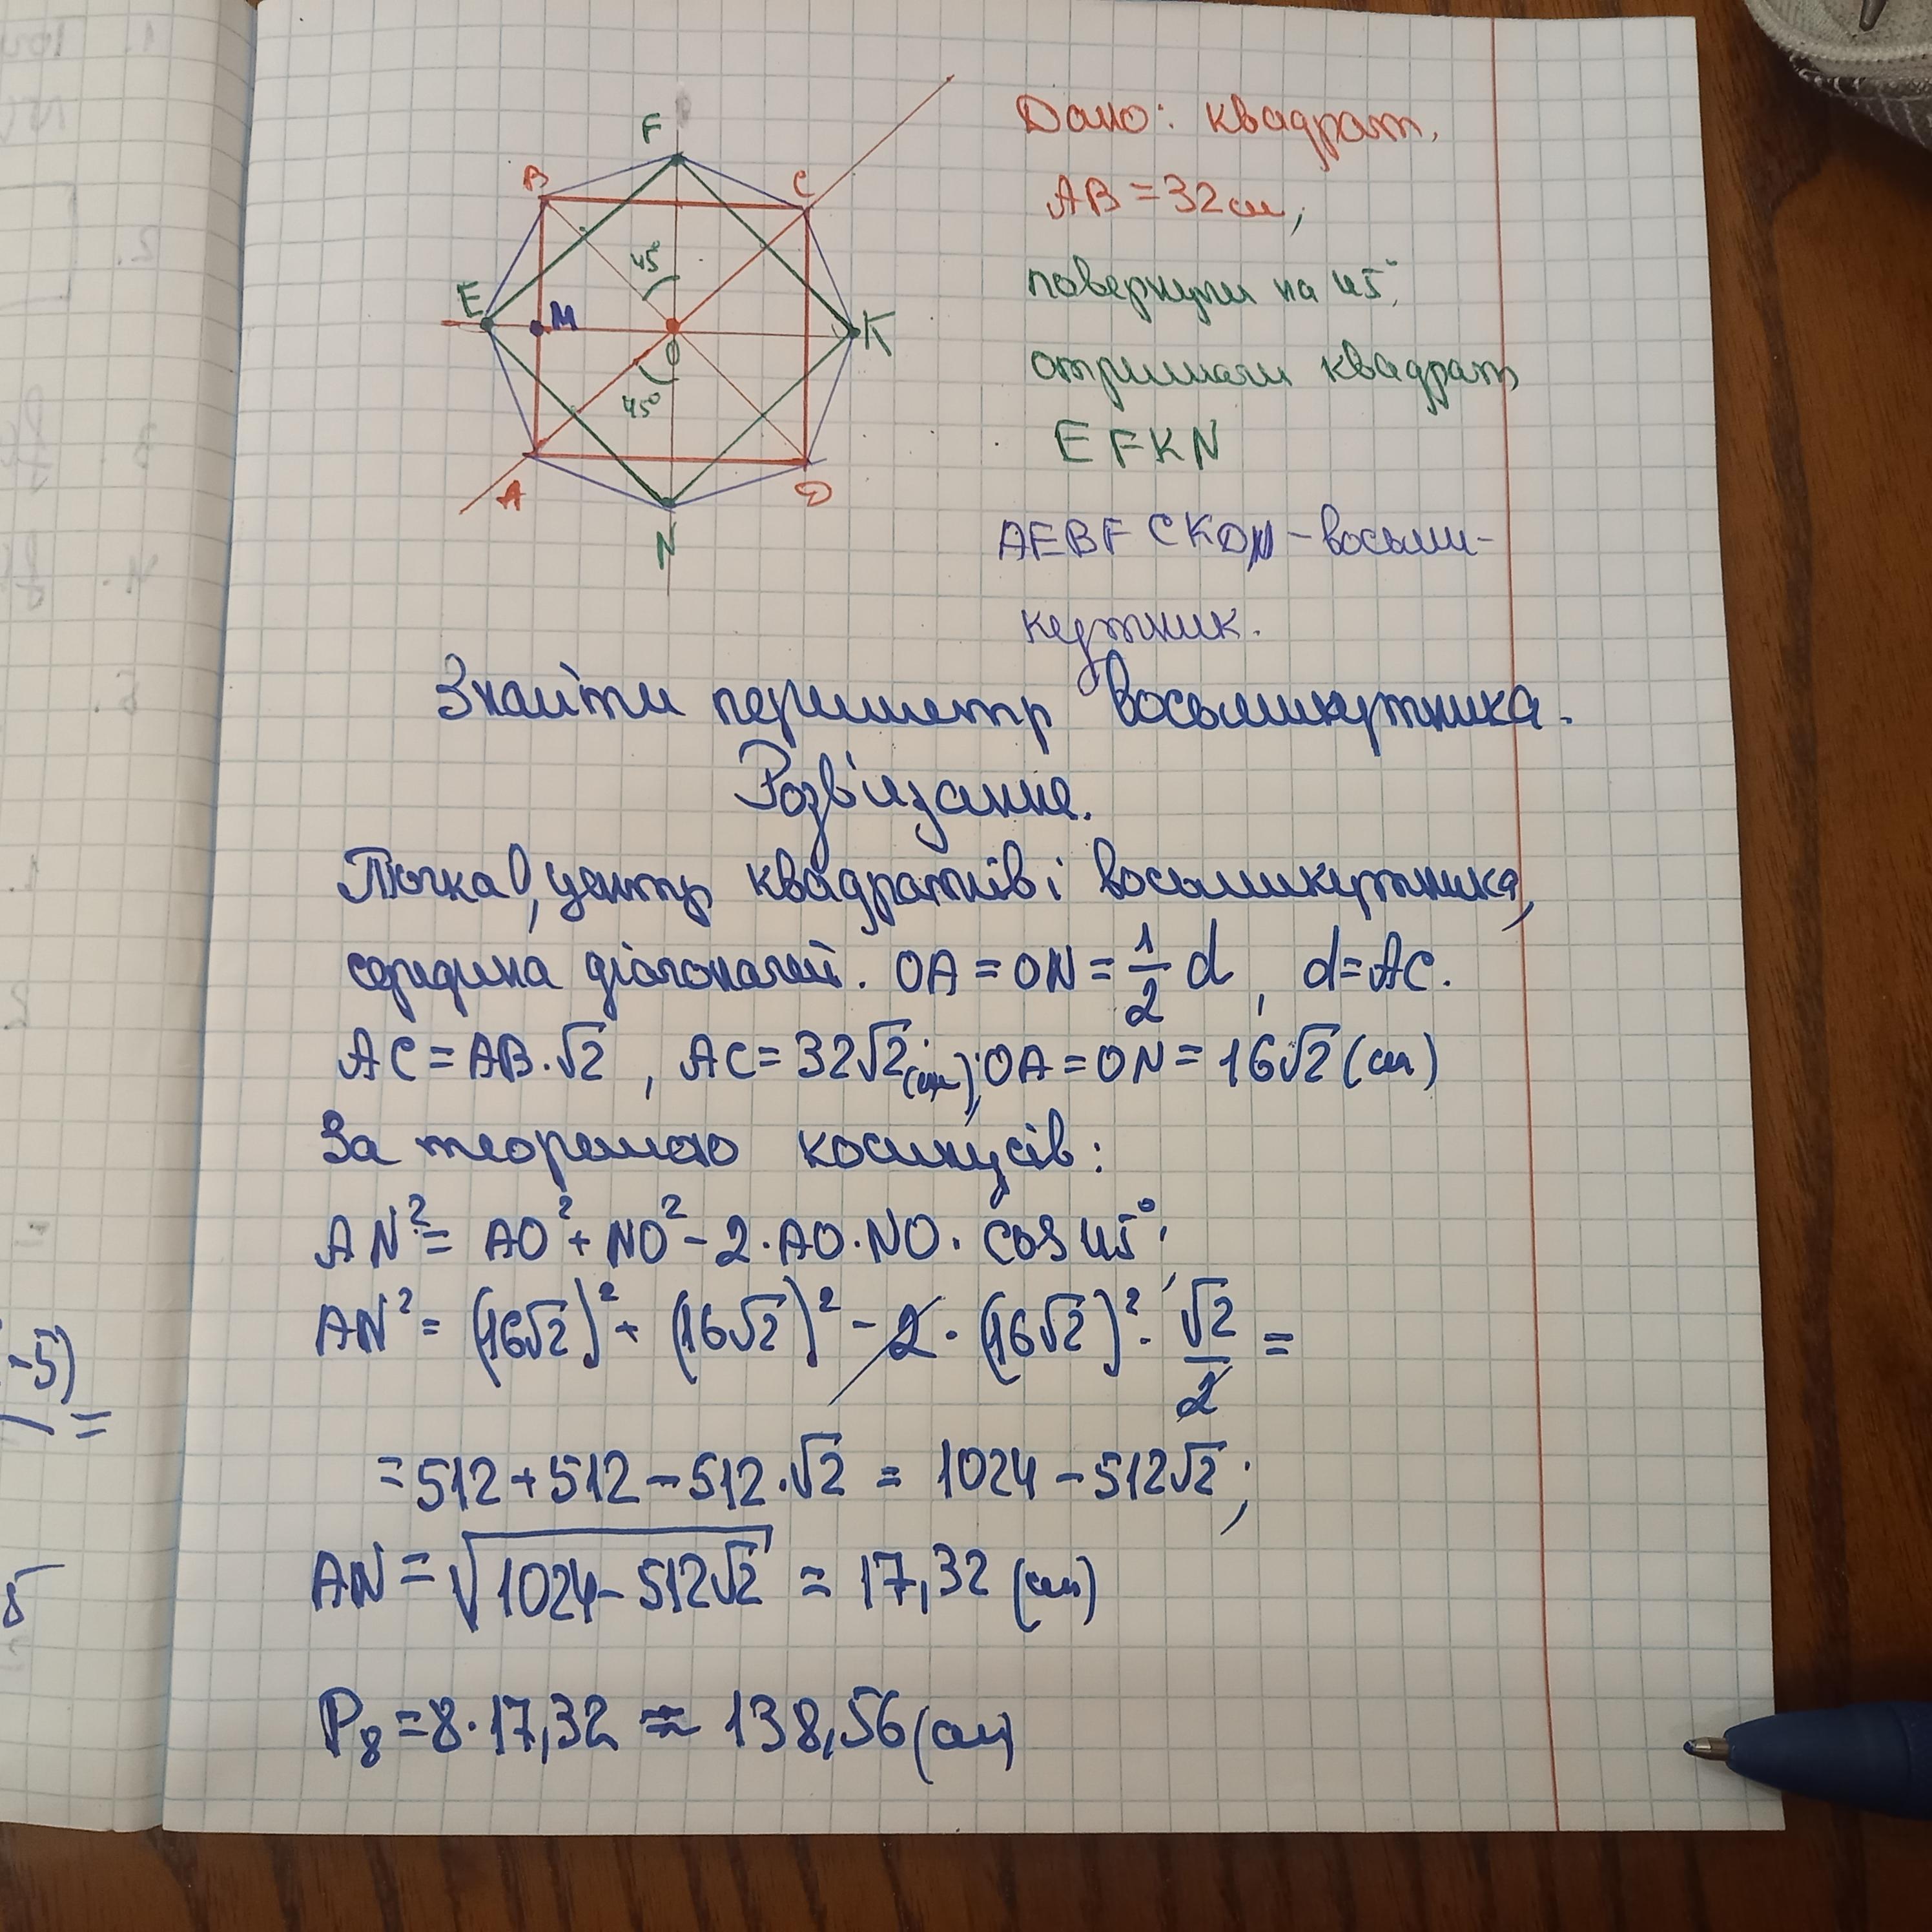 F
B
C
45°
E
M
K
O
45°
A
D
N
Дано: квадрат,
AB = 32 см,
повернули на 45°,
отримали квадрат
EFKN
AEBFCKDN - восьми-
кутник.
Знайти периметр восьмикутника.
Розв'язання.
Точка O, центр квадратів і восьмикутника,
середина діагоналей. OA = ON = 1/2 d, d = AC.
AC = AB · √2, AC = 32√2 (см); OA = ON = 16√2 (см)
За теоремою косинусів:
AN² = AO² + NO² - 2 · AO · NO · cos 45°;
AN² = (16√2)² + (16√2)² - 2 · (16√2)² · √2/2 =
= 512 + 512 - 512 · √2 = 1024 - 512√2;
AN = √(1024 - 512√2) = 17,32 (см)
P₈ = 8 · 17,32 ≈ 138,56 (см)
-5)
=
5